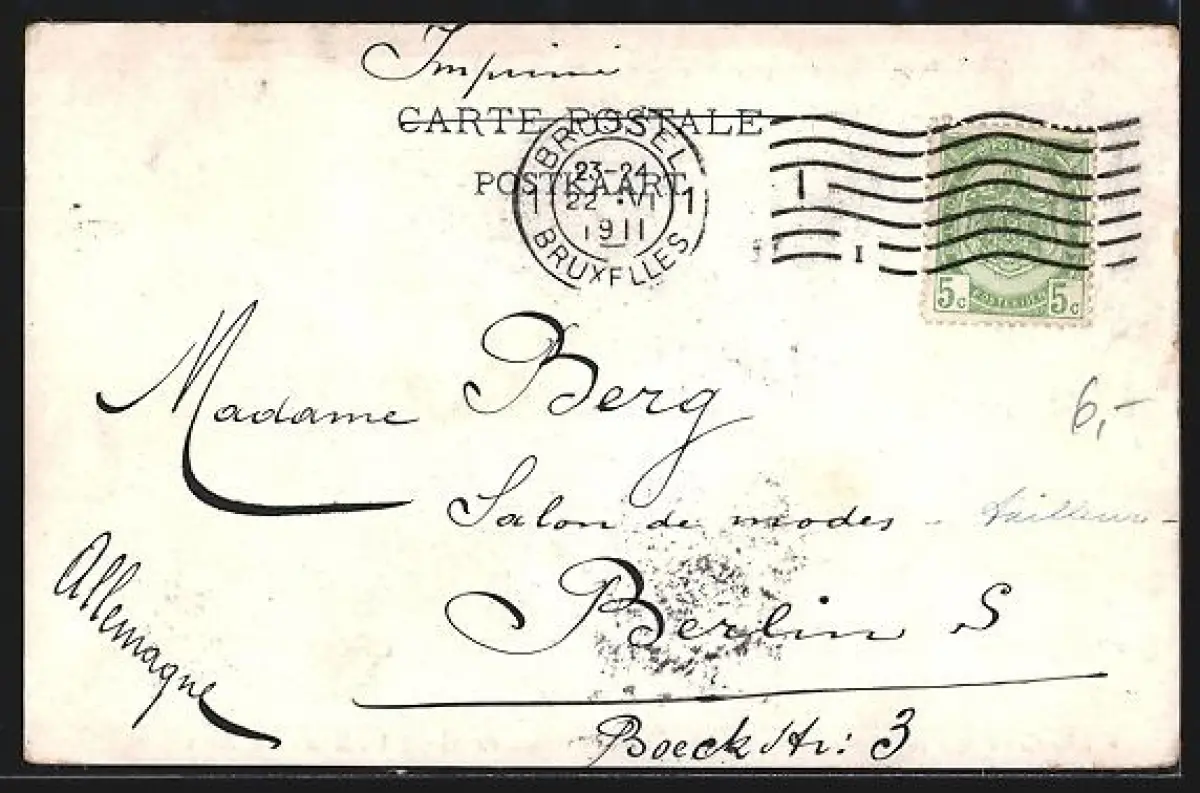 Imprimé
CARTE POSTALE
POSTKAART
BRUSSEL
23-24
1 22 ·VI 1
1911
BRUXELLES
I
5c 5c
Madame Berg
6,-
Salon de modes - tailleur -
Allemagne
Berlin S
Boeckstr: 3